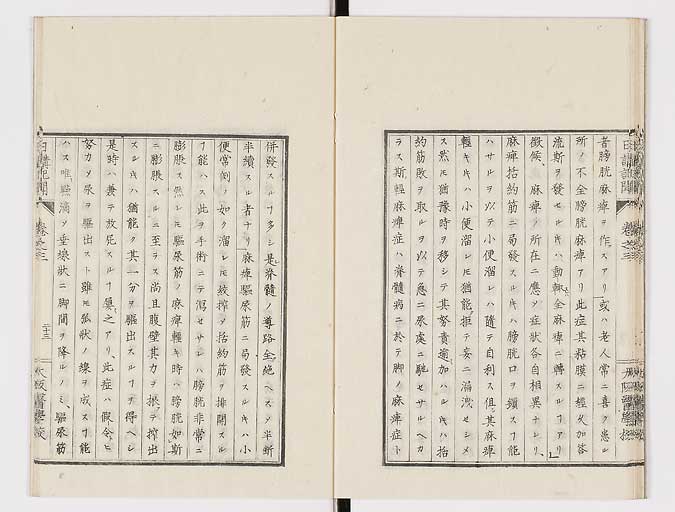 者膀胱麻痺ヲ作スアリ或ハ老人常ニ喜ク患ル
所ノ不全膀胱麻痺アリ此症其粘膜ニ經久加答
流斯ヲ發セルキハ動輒全麻痺ニ轉スルヿアリ
徴候、麻痺ノ所在ニ應メ症狀各自相異ナレリ、
麻痺括約筋ニ局發スルキハ膀胱口ヲ鎖スヿ能
ハサルヲ以テ小便溜レハ隨テ自利ス但其麻痺
輕キハ小便溜レ𪜈猶能拒テ妄ニ漏洩セシメ
ス然𪜈猶豫時ヲ移シテ其努責逾加ハルキハ括
約筋敗ヲ取ルヲ以テ應ニ尿處ニ馳セサルヘカ
ラス斯輕麻痺症ハ脊髓病ニ於テ脚ノ麻痺症ト
併發スルヿ多シ是脊髓ノ導路全絶ヘスメ半斷
半續スル者ナリ麻痺驅尿筋ニ局發スルキハ小
便常例ノ如ク溜レ𪜈絞搾メ括約筋ヲ排開スル
ヿ能ハス此ヲ手術ニテ瀉セサレハ膀胱非常ニ
膨脹ス然レ𪜈驅尿筋ノ麻痺輕キ時ハ膀胱如斯
ニ膨脹スルニ至ラス尚且腹壁其力ヲ援テ搾出
スルキハ猶能ク其一分ヲ驅出スルヿヲ得ヘシ
是時ハ兼テ放屁スルヿ屢之アリ、此症ハ假令ヒ
努力メ尿ヲ驅出スト雖𪜈弧狀ノ線ヲ成スヿ能
ハス唯點滴メ垂線狀ニ脚間ヲ降ルノミ、驅尿筋
日講記聞
卷之三
二十三
大阪醫學校